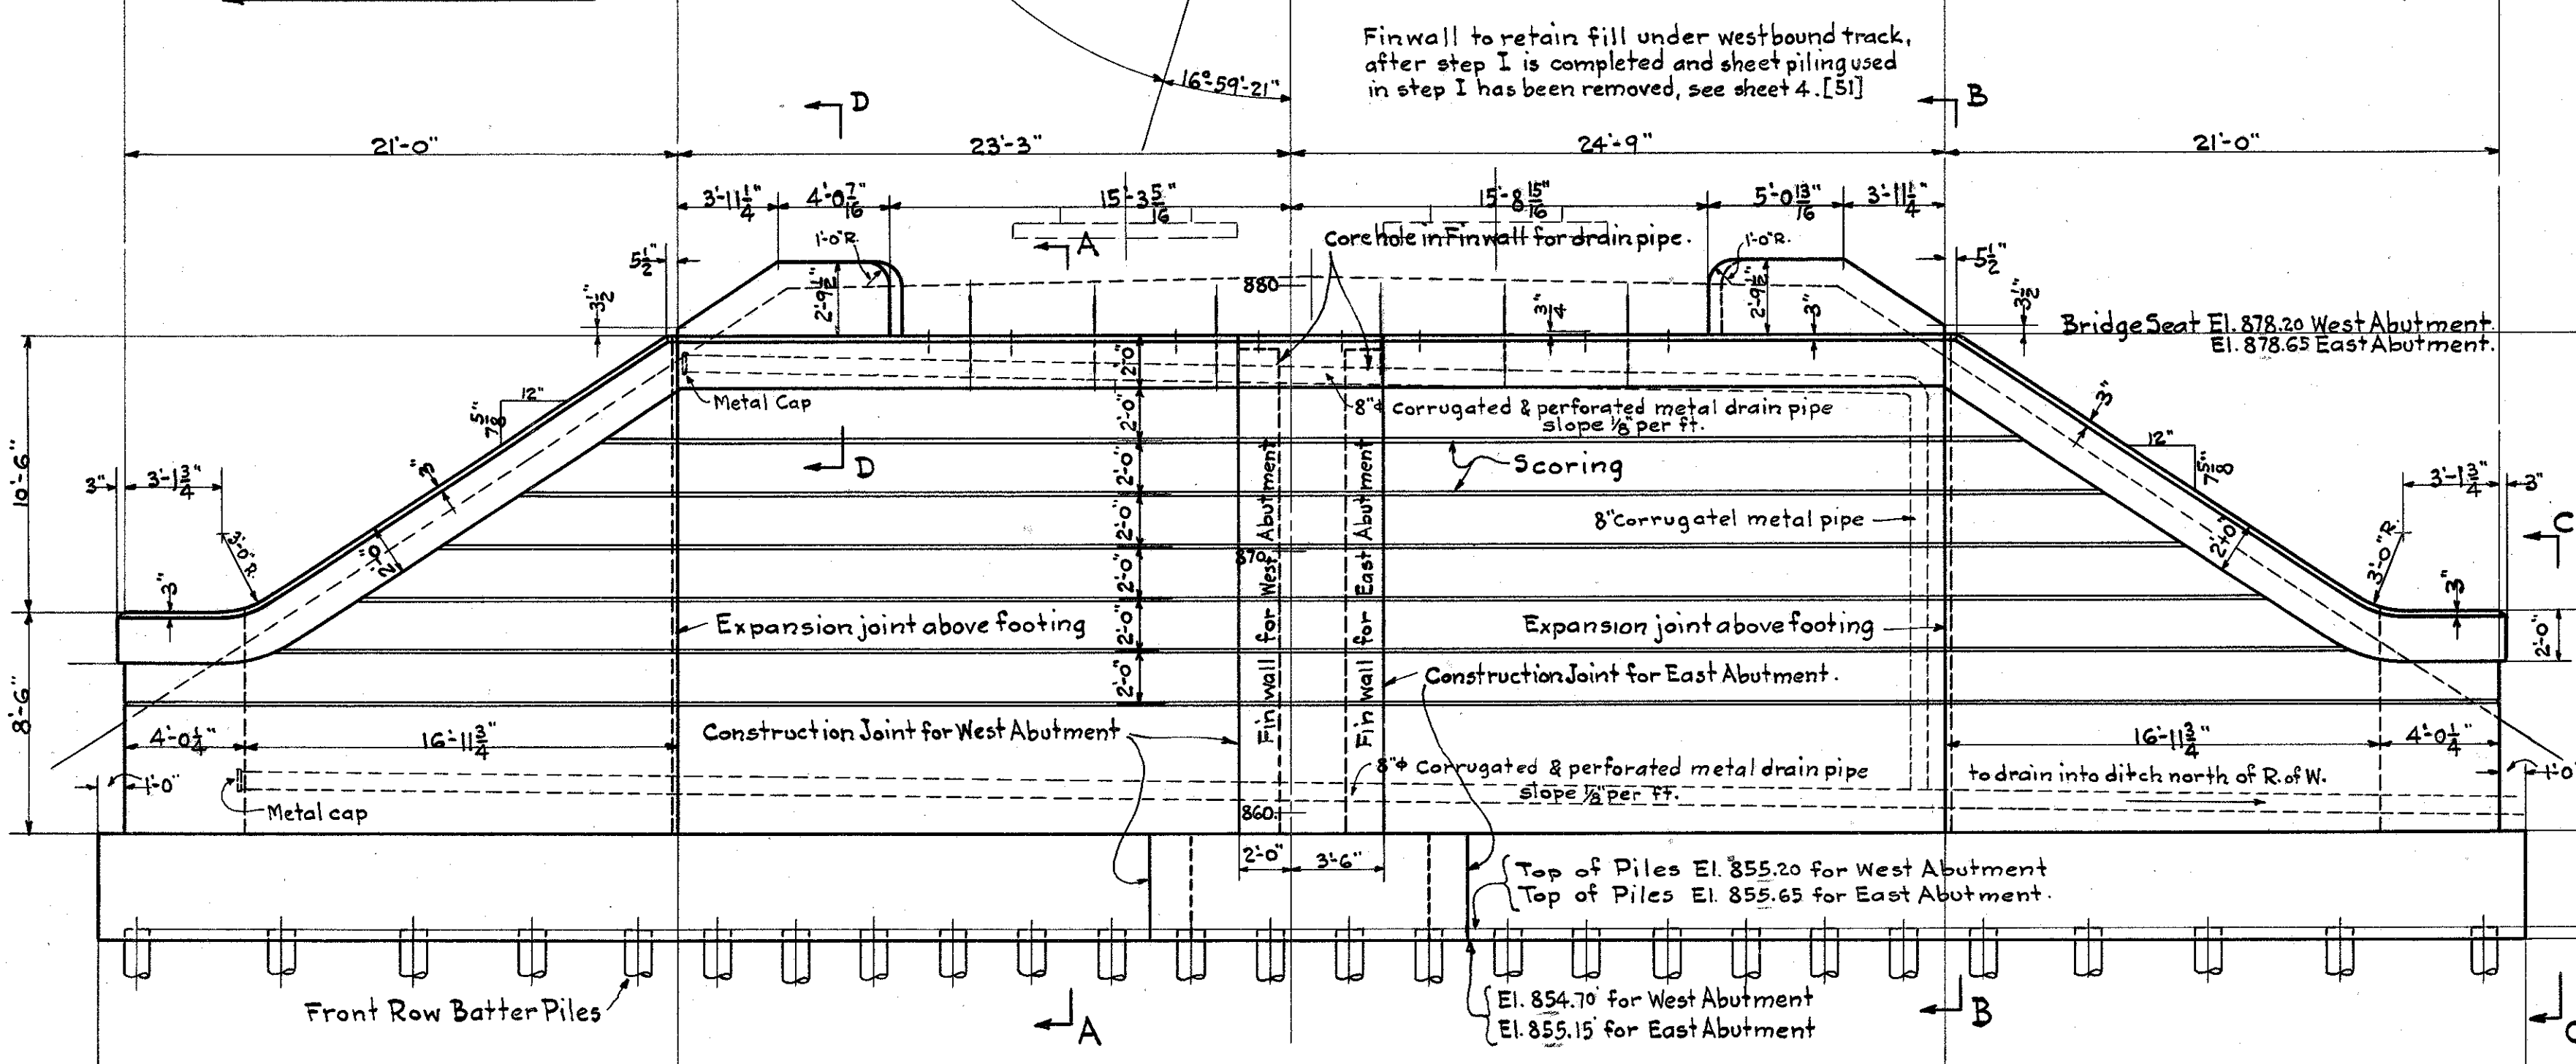 Finwall to retain fill under westbound track,
after step I is completed and sheet piling used
in step I has been removed, see sheet 4.[51]
16°-59'-21"
D
B
21'-0"
23'-3"
24'-9"
21'-0"
3'-11 1/4"
4'-0 7/16"
15'-3 5/16"
15'-8 15/16"
5'-0 13/16"
3'-11 1/4"
1'-0"R.
A
Corehole in Finwall for drain pipe.
1'-0"R.
5 1/2"
5 1/2"
3 1/2"
2'-9 1/2"
880
3/4"
2'-9 1/2"
3"
3 1/2"
Bridge Seat El. 878.20 West Abutment.
El. 878.65 East Abutment.
2'-0"
Metal Cap
8"ϕ Corrugated & perforated metal drain pipe
slope 1/8" per ft.
12"
7 5/8"
2'-0"
3"
12"
7 5/8"
D
Scoring
10'-6"
3"
3'-1 3/4"
3"
2'-0"
3'-1 3/4"
3"
3'-0"R.
2'-0"
2'-0"
870
8"Corrugatel metal pipe
2'-0"
3'-0"R.
C
3"
2'-0"
3"
Expansion joint above footing
2'-0"
Finwall for West Abutment
Finwall for East Abutment
Expansion joint above footing
2'-0"
8'-6"
2'-0"
Construction Joint for East Abutment.
4'-0 1/4"
16'-11 3/4"
Construction Joint for West Abutment
16'-11 3/4"
4'-0 1/4"
1'-0"
8"ϕ Corrugated & perforated metal drain pipe
slope 1/8" per ft.
to drain into ditch north of R.of W.
1'-0"
Metal cap
860
2'-0"
3'-6"
Top of Piles El. 855.20 for West Abutment
Top of Piles El. 855.65 for East Abutment.
Front Row Batter Piles
A
El. 854.70 for West Abutment
El. 855.15 for East Abutment
B
C